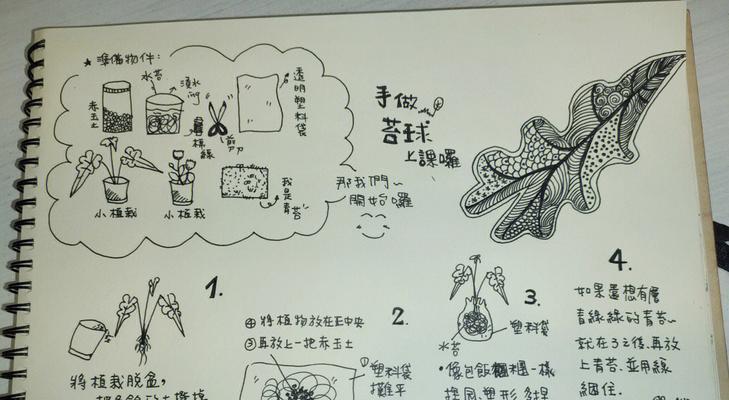 ★ 準備物件:
水苔
浸水ing
透明塑料袋
赤玉土
棉線
剪刀
小植栽
小植栽
我是青苔
手做
苔球
上課囉
那我們~
開始囉
1.
將植栽脫盆,
④將植物放在正中央
③再放上一把赤玉土
2.
①塑料袋
攤平
3.
塑料袋
水苔
•像包飯糰一樣
4.
如果還想有層
青綠綠的青苔~
就在3之後、再放
上青苔、並用線
綑住.